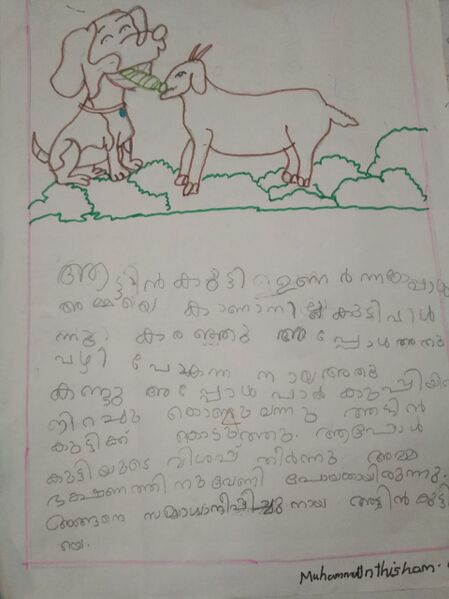 ആട്ടിൻ കുട്ടി ഉണർന്നപ്പോൾ
അമ്മയെ കാണാനില്ല കുട്ടി
കരഞ്ഞു അപ്പോൾ അതു
വഴി പോകുന്ന നായ അതു
കണ്ടു അപ്പോൾ പാൽ കുപ്പിയിൽ
നിറച്ചു കൊണ്ടുവന്നു ആട്ടിൻ
കുട്ടിക്ക് കൊടുത്തു. അപ്പോൾ
കുട്ടിയുടെ വിശപ്പ് തീർന്നു. അമ്മ
ഭക്ഷണത്തിനുവേണി പോയതായിരുന്നു.
അങ്ങനെ സമാധാനിപ്പിച്ചു നായ ആട്ടിൻ കുട്ടി
യെ.
Muhammed Inthisham.